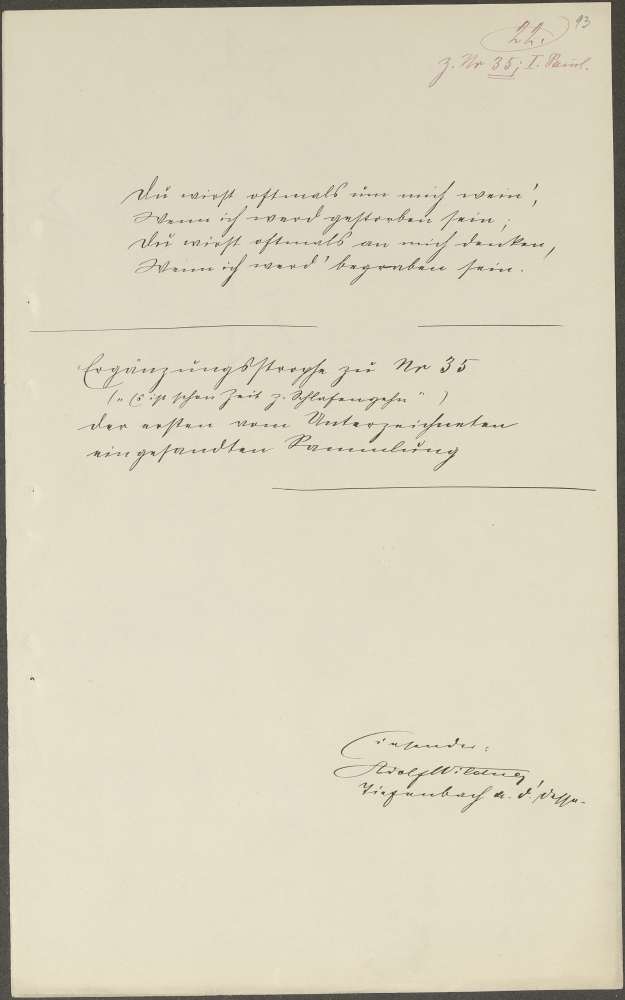 93
22.
z. Nr 35; I. Saml.
Du wirst oftmals um mich wein',
Wenn ich werd gestorben sein;
Du wirst oftmals an mich denken,
Wenn ich werd' begraben sein.
Ergänzungsstrophe zu Nr 35
(„Es ist schon Zeit z. Schlafengehn")
der ersten vom Unterzeichneten
eingesandten Sammlung
Einsender:
Adolf Wildner,
Tiefenbach a. d. Desse.